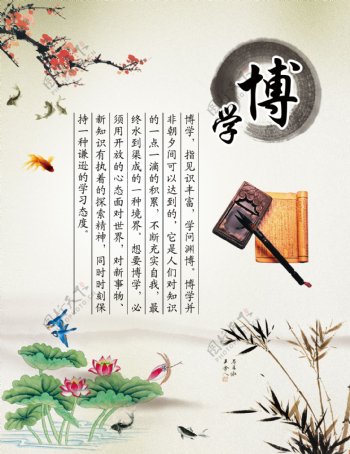 博学
博学，指见识丰富，学问渊博。博学并
非朝夕间可以达到的，它是人们对知识
的一点一滴的积累，不断充实自我，最
终水到渠成的一种境界。想要博学，必
须用开放的心态面对世界，对新事物、
新知识有执着的探索精神，同时时刻保
持一种谦逊的学习态度。